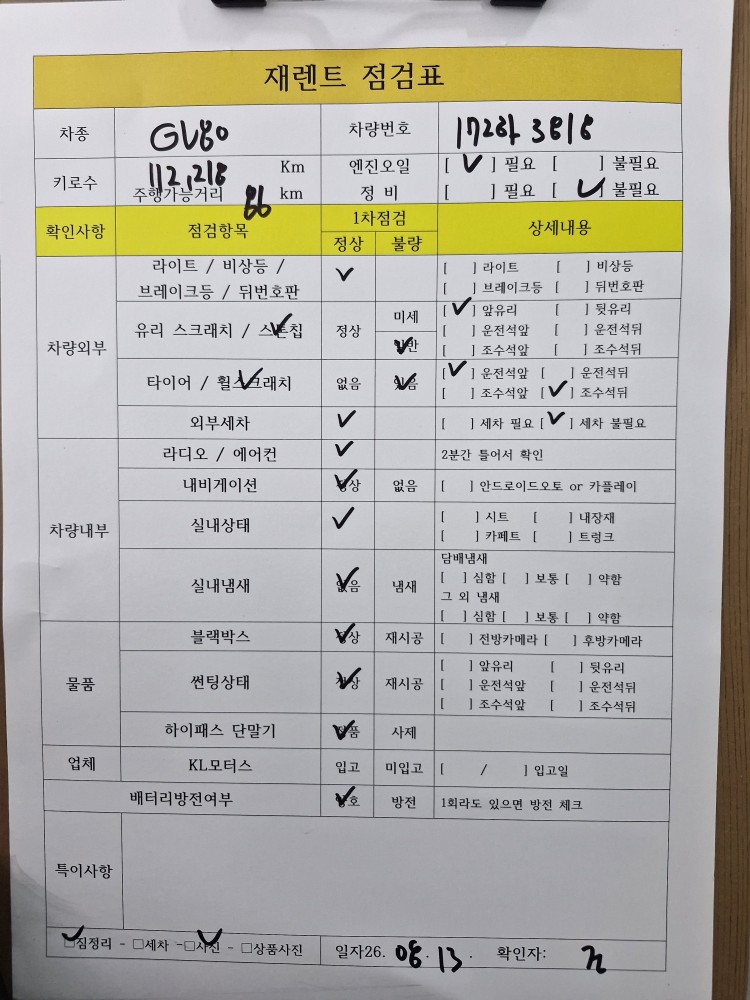 재렌트 점검표
차종 GV80 차량번호 172하 3818
키로수 112,218 Km 엔진오일 [ ✓ ] 필요 [ ] 불필요
주행가능거리 86 km 정 비 [ ] 필요 [ ✓ ] 불필요
확인사항 점검항목 1차점검 상세내용
정상 불량
차량외부
라이트 / 비상등 / ✓ [ ] 라이트 [ ] 비상등
브레이크등 / 뒤번호판 [ ] 브레이크등 [ ] 뒤번호판
유리 스크래치 / 스톤칩 ✓ 정상 미세 [ ✓ ] 앞유리 [ ] 뒷유리
[ ] 운전석앞 [ ] 운전석뒤
일반 ✓ [ ] 조수석앞 [ ] 조수석뒤
타이어 / 휠스크래치 ✓ 없음 있음 ✓ [ ✓ ] 운전석앞 [ ] 운전석뒤
[ ] 조수석앞 [ ✓ ] 조수석뒤
외부세차 ✓ [ ] 세차 필요 [ ✓ ] 세차 불필요
차량내부
라디오 / 에어컨 ✓ 2분간 틀어서 확인
내비게이션 정상 ✓ 없음 [ ] 안드로이드오토 or 카플레이
실내상태 ✓ [ ] 시트 [ ] 내장재
[ ] 카페트 [ ] 트렁크
실내냄새 없음 ✓ 냄새 담배냄새
[ ] 심함 [ ] 보통 [ ] 약함
그 외 냄새
[ ] 심함 [ ] 보통 [ ] 약함
물품
블랙박스 정상 ✓ 재시공 [ ] 전방카메라 [ ] 후방카메라
썬팅상태 정상 ✓ 재시공 [ ] 앞유리 [ ] 뒷유리
[ ] 운전석앞 [ ] 운전석뒤
[ ] 조수석앞 [ ] 조수석뒤
하이패스 단말기 정품 ✓ 사제
업체 KL모터스 입고 미입고 [ / ] 입고일
배터리방전여부 양호 ✓ 방전 1회라도 있으면 방전 체크
특이사항
☑짐정리 - □세차 - ☑사진 - □상품사진 일자26. 08. 13. 확인자: